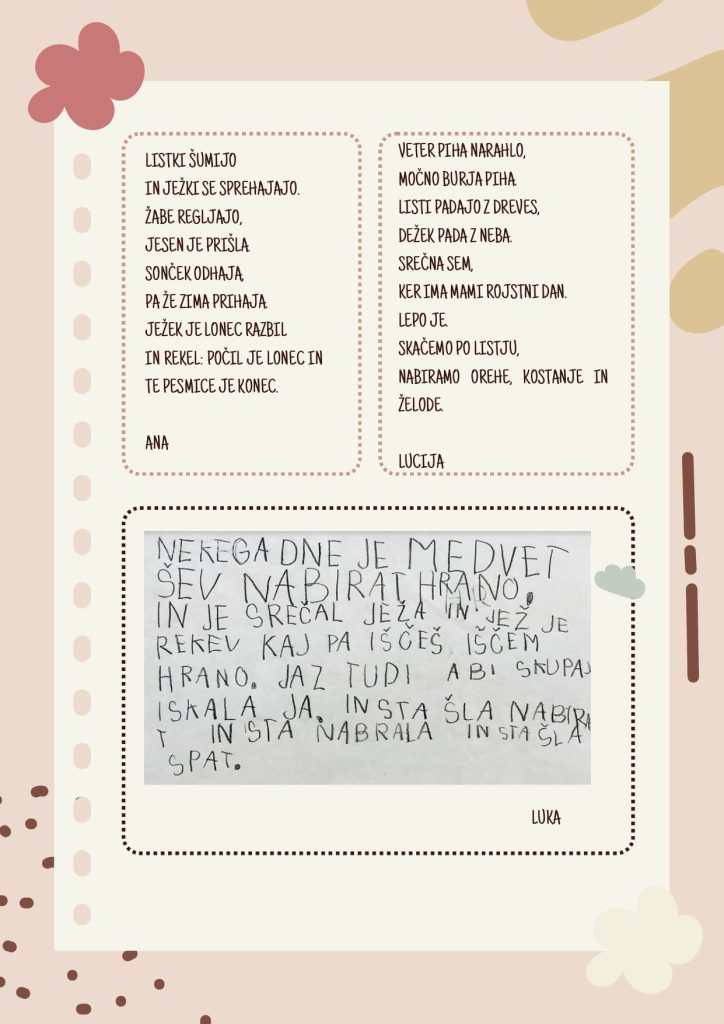 LISTKI ŠUMIJO
IN JEŽKI SE SPREHAJAJO.
ŽABE REGLJAJO,
JESEN JE PRIŠLA.
SONČEK ODHAJA,
PA ŽE ZIMA PRIHAJA.
JEŽEK JE LONEC RAZBIL
IN REKEL: POČIL JE LONEC IN
TE PESMICE JE KONEC.
ANA
VETER PIHA NARAHLO,
MOČNO BURJA PIHA.
LISTI PADAJO Z DREVES,
DEŽEK PADA Z NEBA.
SREČNA SEM,
KER IMA MAMI ROJSTNI DAN.
LEPO JE.
SKAČEMO PO LISTJU,
NABIRAMO OREHE, KOSTANJE IN
ŽELODE.
LUCIJA
NEKEGA DNE JE MEDVET
ŠEV NABIRAT HRANO.
IN JE SREČAL JEŽA IN JEŽ JE
REKEV KAJ PA IŠČEŠ IŠČEM
HRANO. JAZ TUDI A BI SKUPAJ
ISKALA JA. IN STA ŠLA NABIRA
T IN STA NABRALA IN STA ŠLA
SPAT.
LUKA